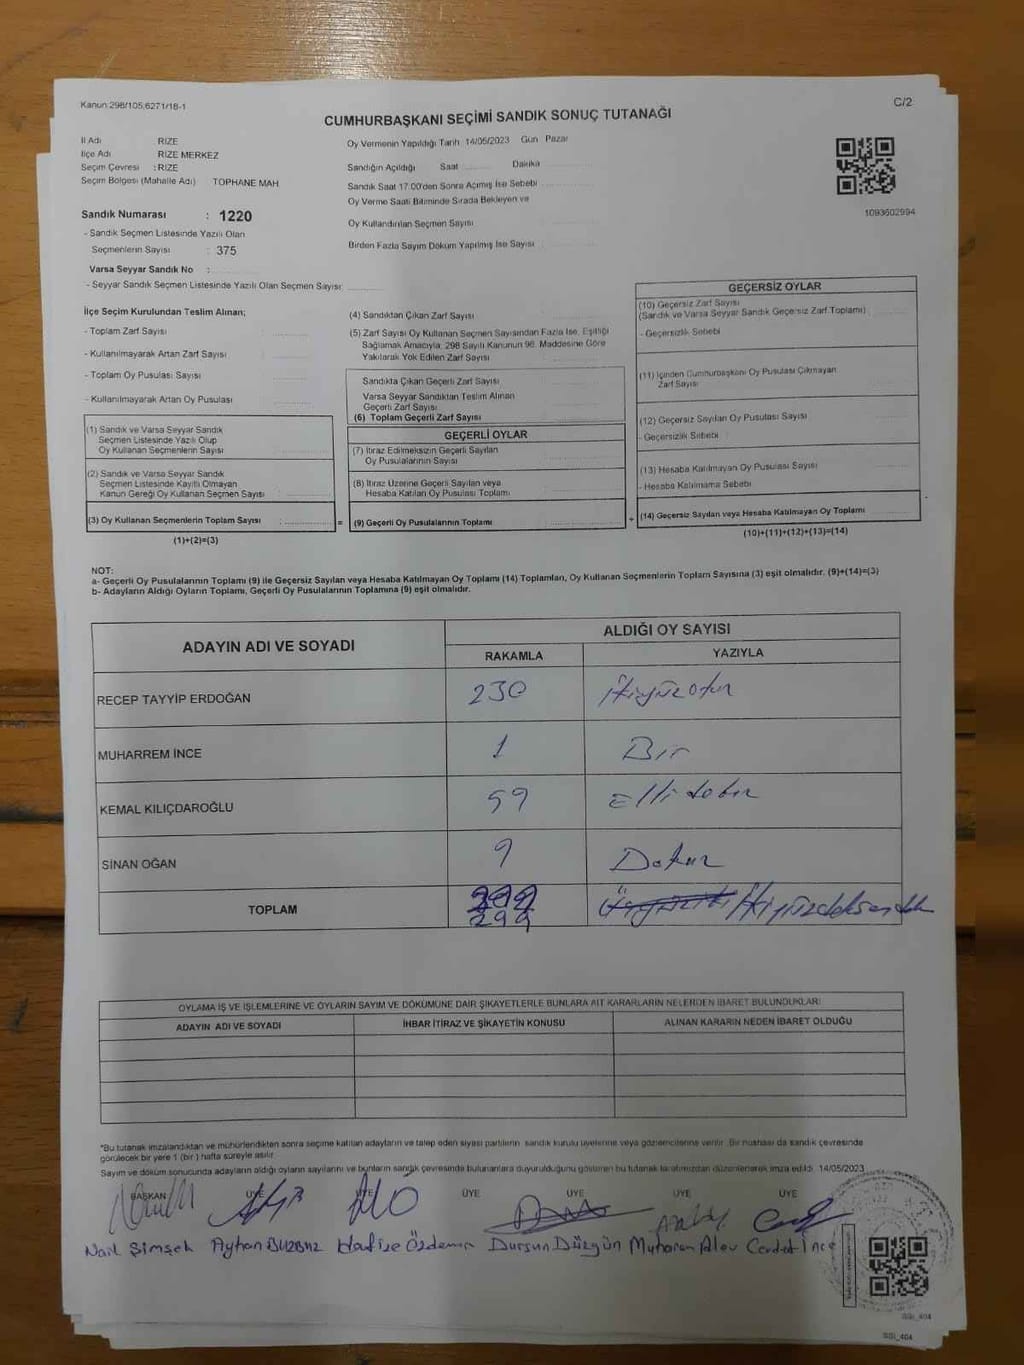 Kanun:298/105;6271/18-1
C/2
CUMHURBAŞKANI SEÇİMİ SANDIK SONUÇ TUTANAĞI
İl Adı RİZE
İlçe Adı RİZE MERKEZ
Seçim Çevresi : RİZE
Seçim Bölgesi (Mahalle Adı) TOPHANE MAH
Sandık Numarası : 1220
- Sandık Seçmen Listesinde Yazılı Olan
Seçmenlerin Sayısı : 375
Varsa Seyyar Sandık No :
- Seyyar Sandık Seçmen Listesinde Yazılı Olan Seçmen Sayısı:
Oy Vermenin Yapıldığı Tarih 14/05/2023 Gün Pazar
Sandığın Açıldığı Saat Dakika
Sandık Saat 17.00'den Sonra Açımış İse Sebebi
Oy Verme Saati Bitiminde Sırada Bekleyen ve
Oy Kullandırılan Seçmen Sayısı
Birden Fazla Sayım Döküm Yapılmış İse Sayısı
1093602994
İlçe Seçim Kurulundan Teslim Alınan;
- Toplam Zarf Sayısı
- Kullanılmayarak Artan Zarf Sayısı
- Toplam Oy Pusulası Sayısı
- Kullanılmayarak Artan Oy Pusulası
(1) Sandık ve Varsa Seyyar Sandık
Seçmen Listesinde Yazılı Olup
Oy Kullanan Seçmenlerin Sayısı
(2) Sandık ve Varsa Seyyar Sandık
Seçmen Listesinde Kayıtlı Olmayan
Kanun Gereği Oy Kullanan Seçmen Sayısı
(3) Oy Kullanan Seçmenlerin Toplam Sayısı :
(1)+(2)=(3)
=
(4) Sandıktan Çıkan Zarf Sayısı
(5) Zarf Sayısı Oy Kullanan Seçmen Sayısından Fazla İse, Eşitliği
Sağlamak Amacıyla; 298 Sayılı Kanunun 98. Maddesine Göre
Yakılarak Yok Edilen Zarf Sayısı
Sandıkta Çıkan Geçerli Zarf Sayısı
Varsa Seyyar Sandıktan Teslim Alınan
Geçerli Zarf Sayısı
(6) Toplam Geçerli Zarf Sayısı
GEÇERLİ OYLAR
(7) İtiraz Edilmeksizin Geçerli Sayılan
Oy Pusulalarının Sayısı
(8) İtiraz Üzerine Geçerli Sayılan veya
Hesaba Katılan Oy Pusulası Toplamı
(9) Geçerli Oy Pusulalarının Toplamı
+
GEÇERSİZ OYLAR
(10) Geçersiz Zarf Sayısı
(Sandık ve Varsa Seyyar Sandık Geçersiz Zarf Toplamı)
- Geçersizlik Sebebi
(11) İçinden Cumhurbaşkanı Oy Pusulası Çıkmayan
Zarf Sayısı
(12) Geçersiz Sayılan Oy Pusulası Sayısı
- Geçersizlik Sebebi
(13) Hesaba Katılmayan Oy Pusulası Sayısı
- Hesaba Katılmama Sebebi
(14) Geçersiz Sayılan veya Hesaba Katılmayan Oy Toplamı
(10)+(11)+(12)+(13)=(14)
NOT:
a- Geçerli Oy Pusulalarının Toplamı (9) ile Geçersiz Sayılan veya Hesaba Katılmayan Oy Toplamı (14) Toplamları, Oy Kullanan Seçmenlerin Toplam Sayısına (3) eşit olmalıdır. (9)+(14)=(3)
b- Adayların Aldığı Oyların Toplamı, Geçerli Oy Pusulalarının Toplamına (9) eşit olmalıdır.
ADAYIN ADI VE SOYADI ALDIĞI OY SAYISI
RAKAMLA YAZIYLA
RECEP TAYYİP ERDOĞAN 230 İkiyüzotuz
MUHARREM İNCE 1 Bir
KEMAL KILIÇDAROĞLU 59 Elli dokuz
SİNAN OĞAN 9 Dokuz
TOPLAM 299
OYLAMA İŞ VE İŞLEMLERİNE VE OYLARIN SAYIM VE DÖKÜMÜNE DAİR ŞİKAYETLERLE BUNLARA AİT KARARLARIN NELERDEN İBARET BULUNDUKLARI
ADAYIN ADI VE SOYADI İHBAR İTİRAZ VE ŞİKAYETİN KONUSU ALINAN KARARIN NEDEN İBARET OLDUĞU
*Bu tutanak imzalandıktan ve mühürlendikten sonra seçime katılan adayların ve talep eden siyasi partilerin sandık kurulu üyelerine veya gözlemcilerine verilir. Bir nüshası da sandık çevresinde
görülecek bir yere 1 (bir) hafta süreyle asılır.
Sayım ve döküm sonucunda adayların aldığı oyların sayılarını ve bunların sandık çevresinde bulunanlara duyurulduğunu gösteren bu tutanak tarafımızdan düzenlenerek imza edildi. 14/05/2023
BAŞKAN ÜYE ÜYE ÜYE ÜYE ÜYE ÜYE
Nail Şimşek Ayhan Hafize Özdemir Dursun Düzgün Muharrem Alev Cevdet İnce
SSİ_404
SSİ_404